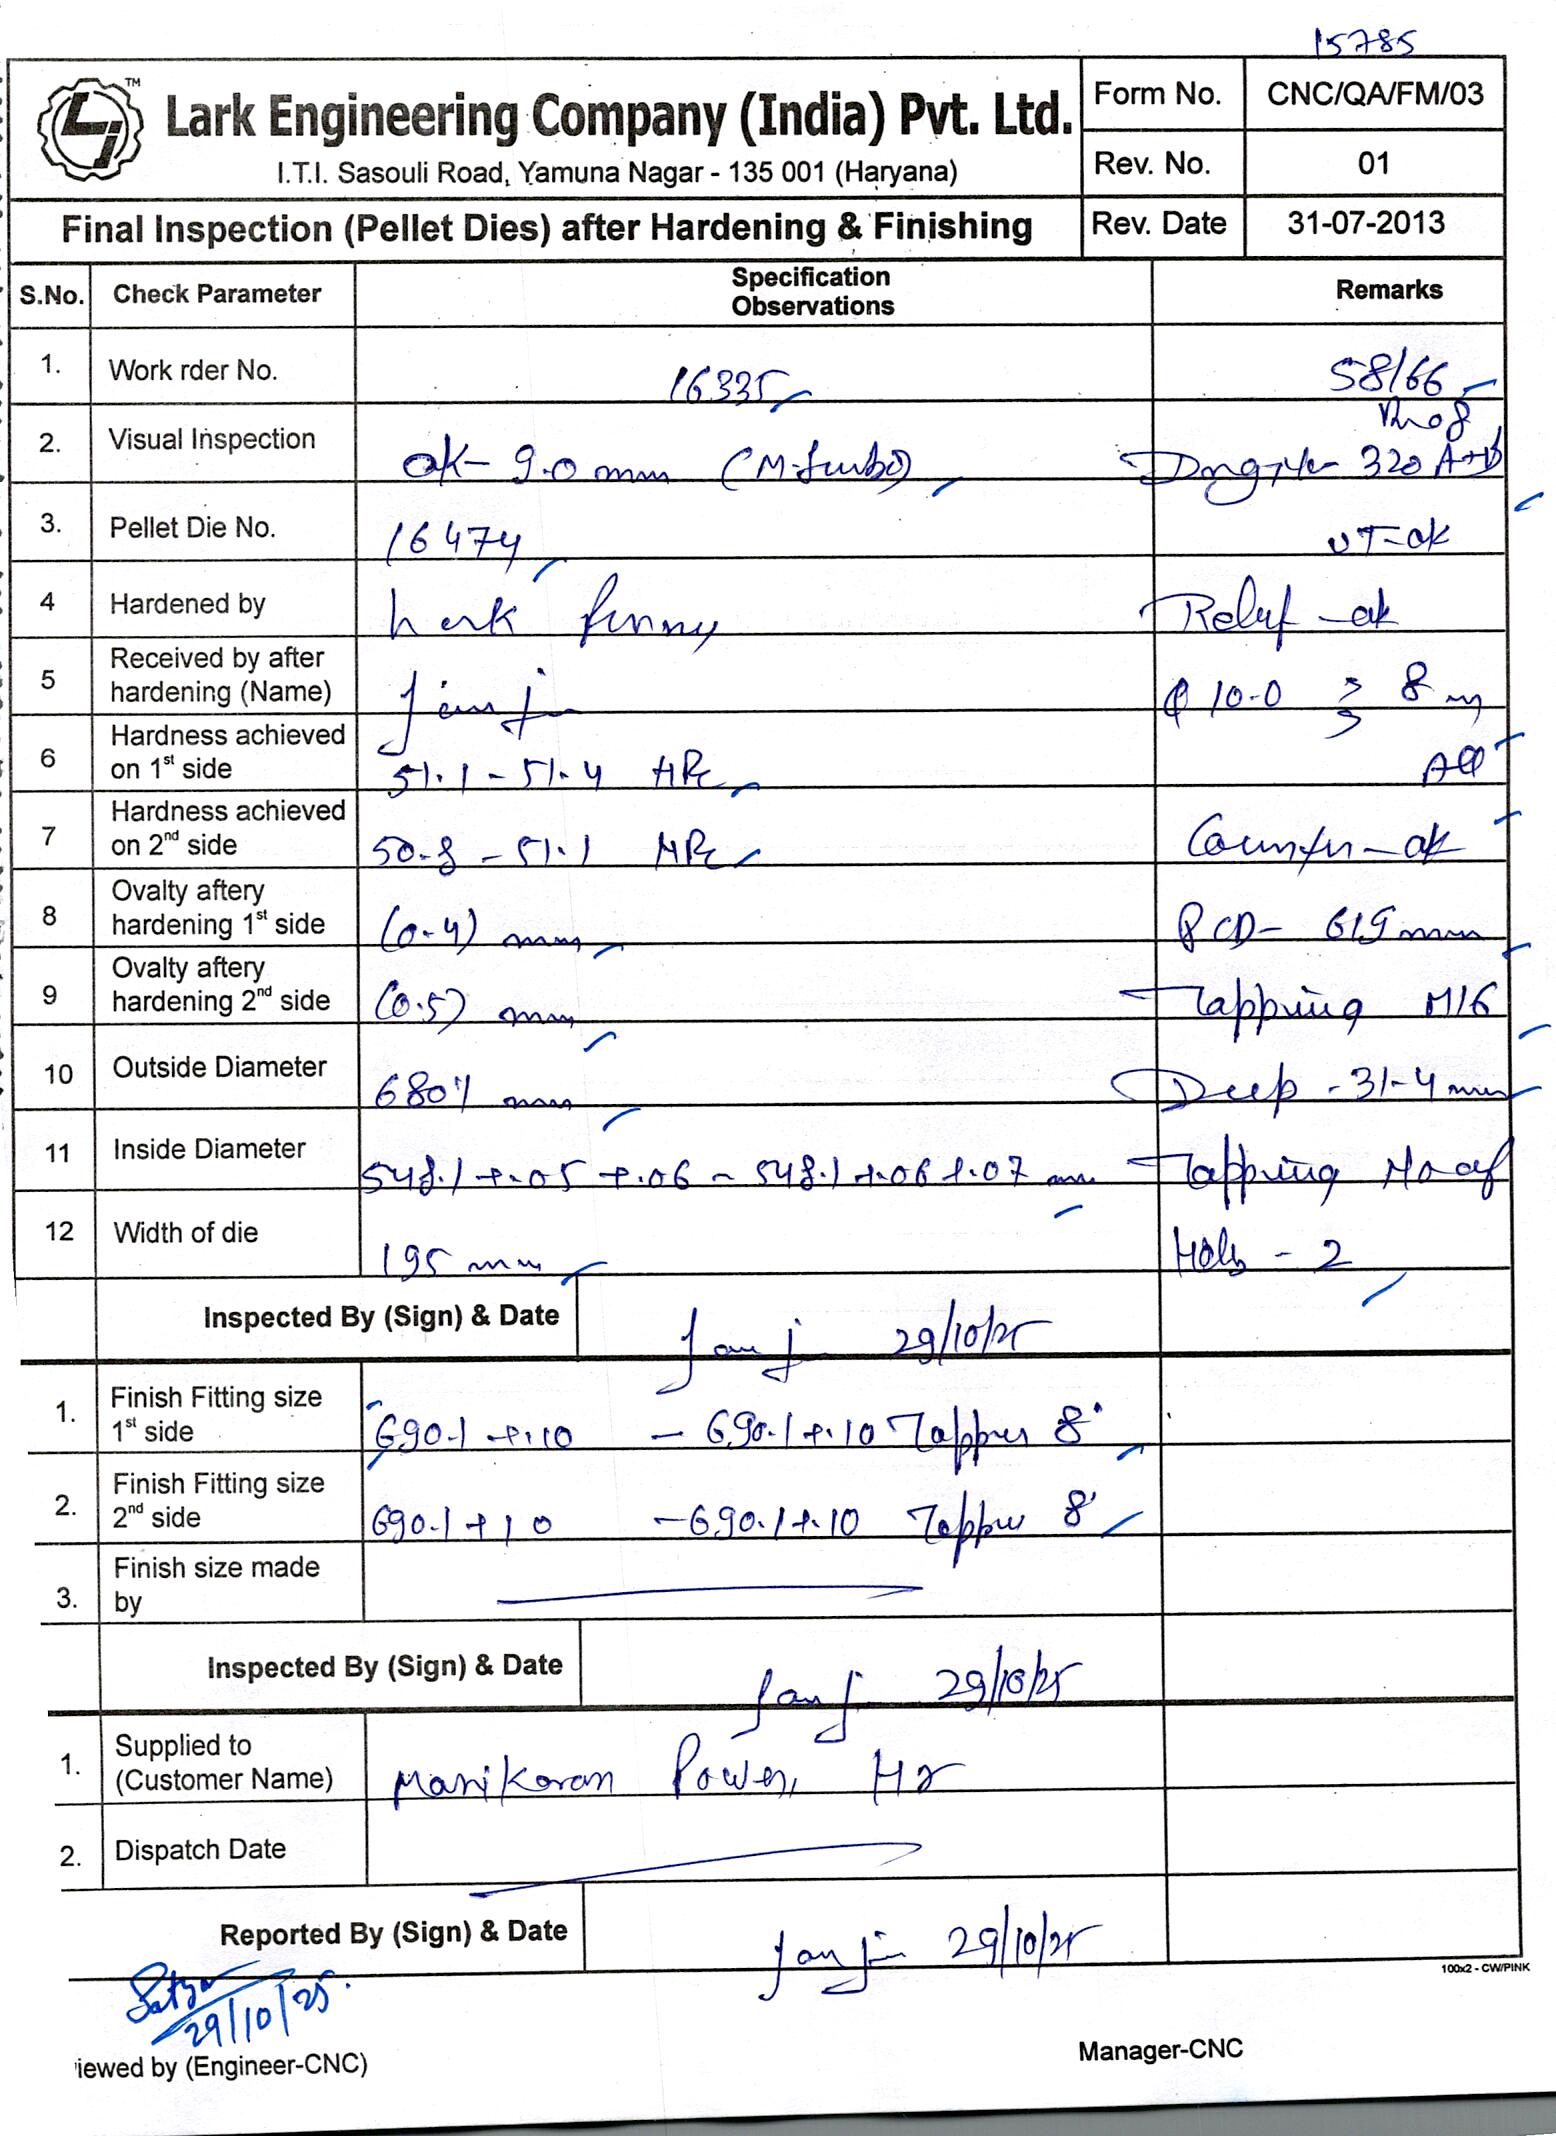 15785
TM
Lark Engineering Company (India) Pvt. Ltd.
I.T.I. Sasouli Road, Yamuna Nagar - 135 001 (Haryana)
Form No. CNC/QA/FM/03
Rev. No. 01
Final Inspection (Pellet Dies) after Hardening & Finishing
Rev. Date 31-07-2013
S.No. Check Parameter Specification Observations Remarks
1. Work rder No. 16335 58/66
2. Visual Inspection ok- 9.0 mm 320
3. Pellet Die No. 16474 UT-ok
4 Hardened by -ok
5 Received by after hardening (Name) 10.0 8
6 Hardness achieved on 1st side 51.1 - 51.4 HRc
7 Hardness achieved on 2nd side 50.8 - 51.1 HRc Counter-ok
8 Ovalty aftery hardening 1st side (0.4) mm PCD- 619 mm
9 Ovalty aftery hardening 2nd side (0.5) mm Tapping M16
10 Outside Diameter mm Deep - 31-4 mm
11 Inside Diameter 548.1 +.05 +.06 - 548.1 +.06 +.07 mm Tapping No of
12 Width of die 195 mm Hols - 2
Inspected By (Sign) & Date 29/10/25
1. Finish Fitting size 1st side 690.1 +.10 - 690.1 +.10 8°
2. Finish Fitting size 2nd side 690.1 +10 - 690.1 +.10 8°
3. Finish size made by
Inspected By (Sign) & Date 29/10/25
1. Supplied to (Customer Name) Manikaran Power, Hr
2. Dispatch Date
Reported By (Sign) & Date 29/10/25
100x2 - CW/PINK
29/10/25.
iewed by (Engineer-CNC)
Manager-CNC